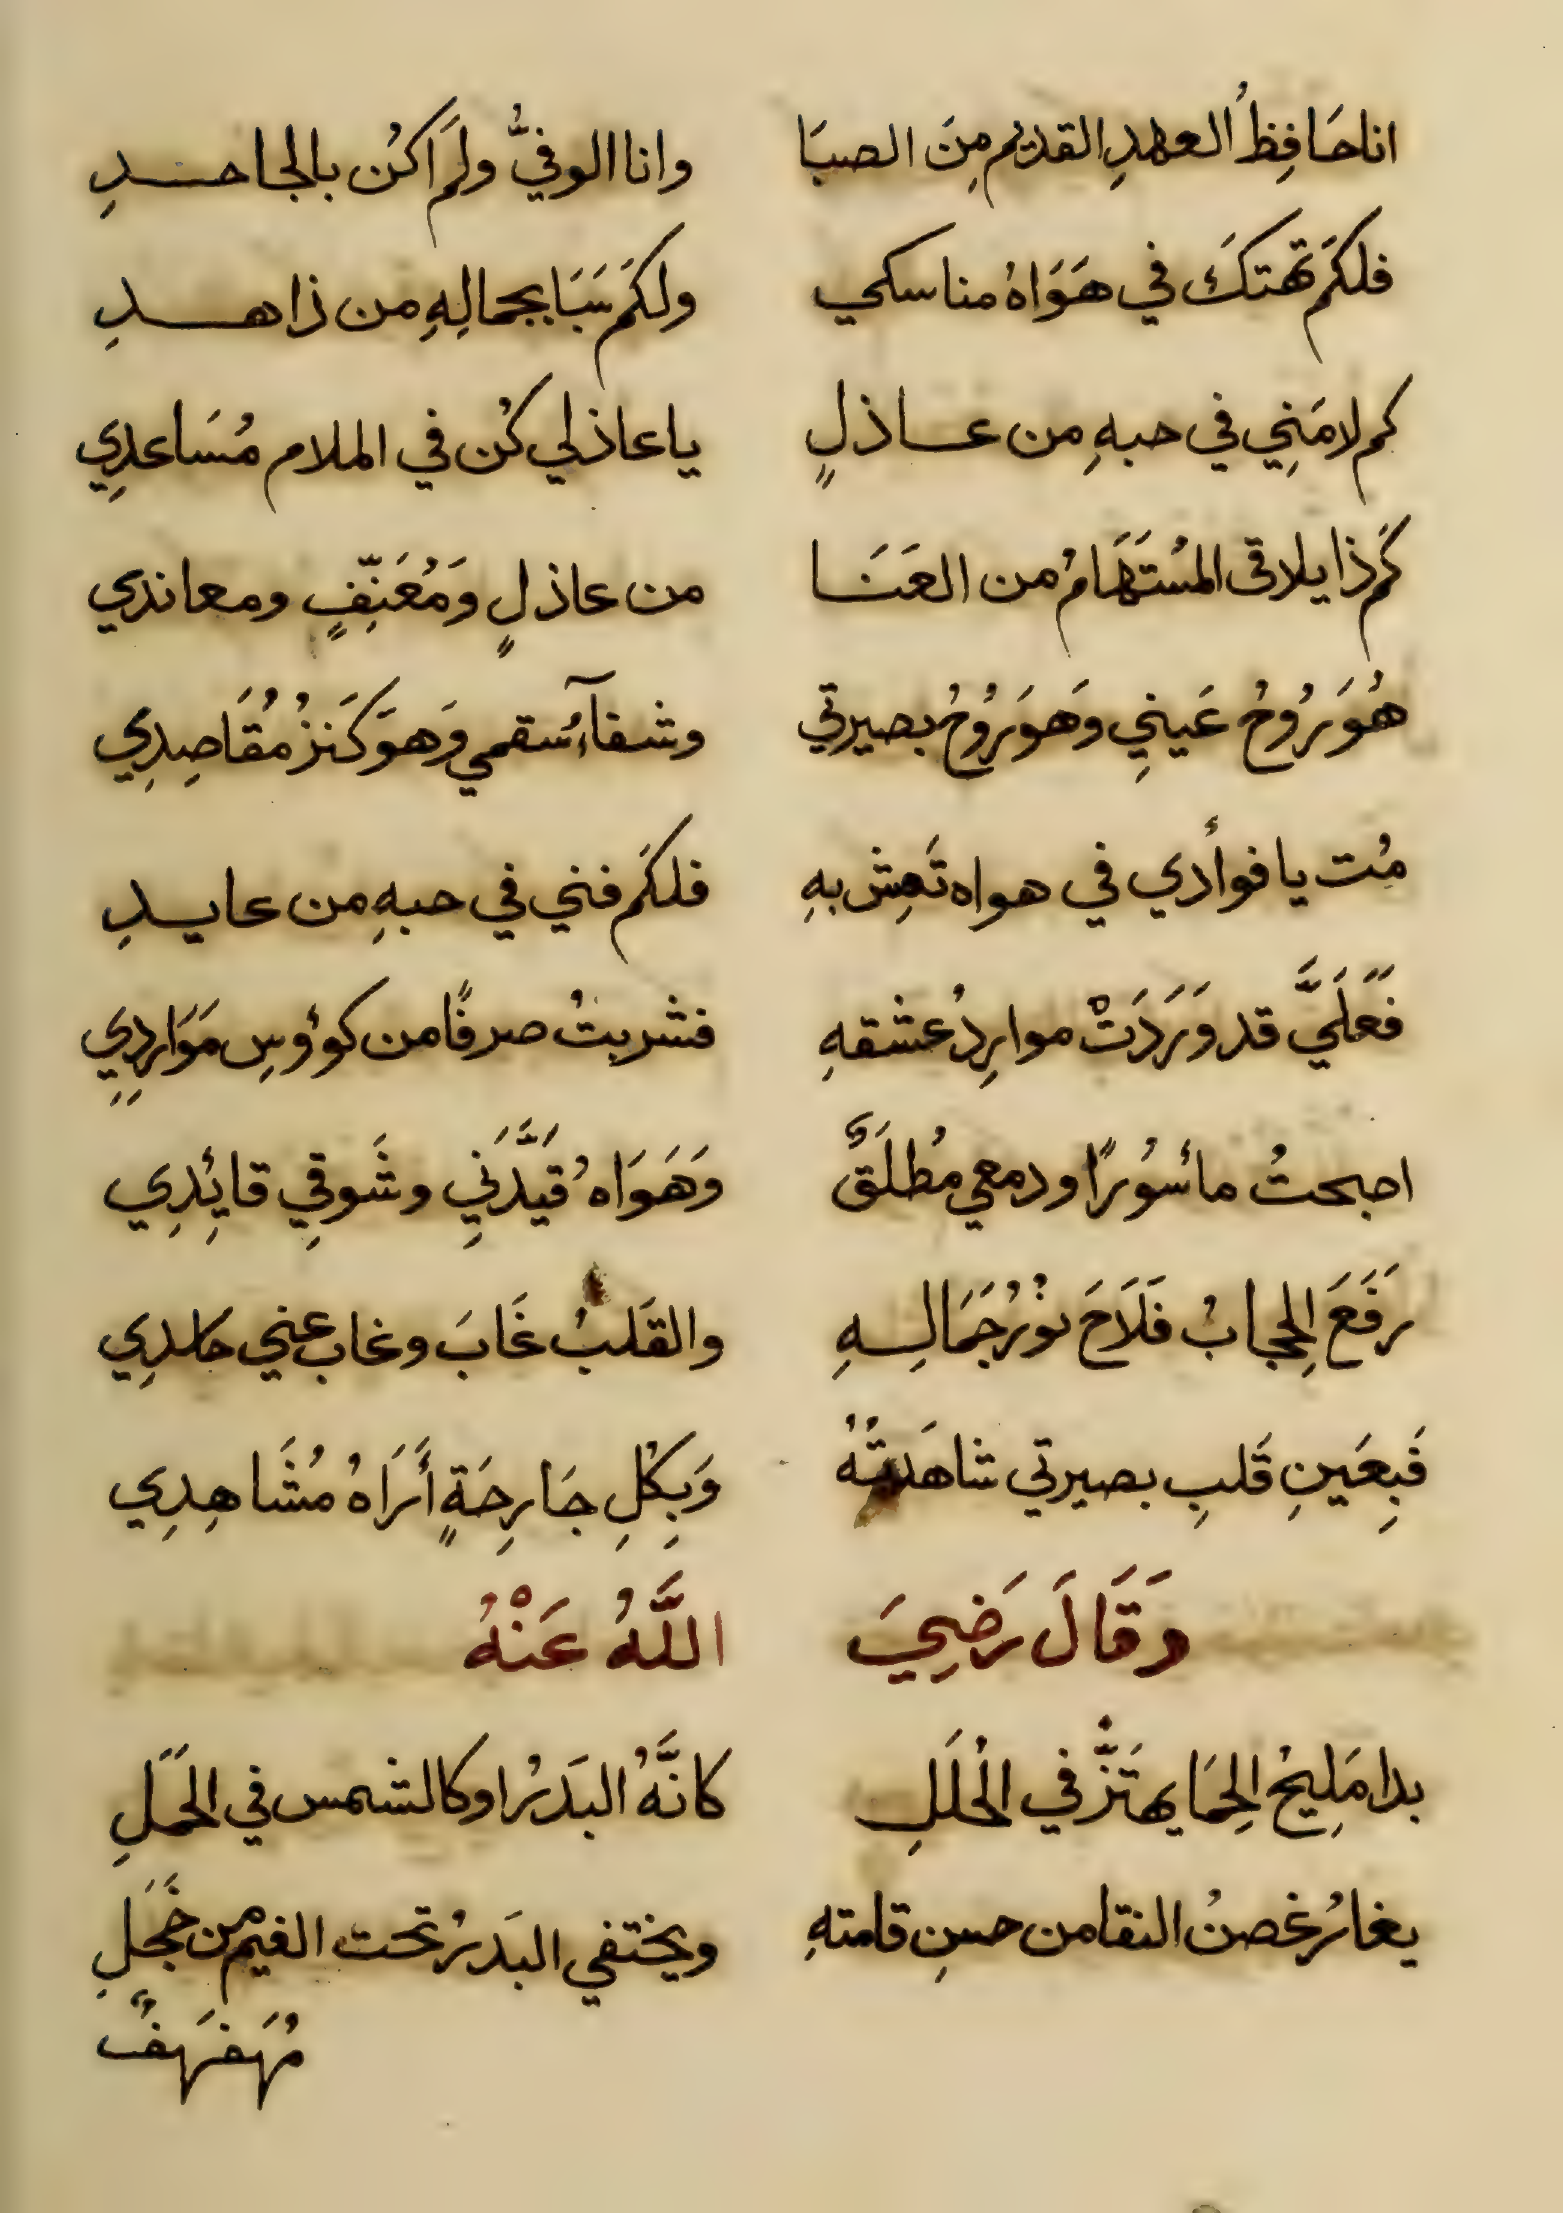 انا حَافِظُ العهدِ القديم مِنَ الصبَا وانا الوفيُّ ولَم اكُن بالجاحدِ
فلكَم تهتكَ في هَوَاهُ مناسكي ولكَم سَبَا بجمالِهِ من زاهدِ
كم لامَنِي في حبهِ من عاذلٍ يا عاذلي كُن في الملام مُسَاعدِي
كَم ذا يلاقى المُستَهَامُ من العَنَا من عاذلٍ وَمُعَنِّفٍ ومعاندي
هُوَ رُوحُ عَيني وَهوَ رُوحُ بصيرتي وشفآءُ سقمي وَهوَ كَنزُ مُقَاصِدِي
مُت يا فوأدي في هواه تَعِش بهِ فلكَم فني في حبهِ من عايدِ
فَعَلَيَّ قد وَرَدَتْ موارِدُ عشقهِ فشربتُ صرفًا من كوؤسِ مَوَارِدِي
اصبحتُ مأسُورًا ودمعي مُطلَقٌ وَهَوَاهُ قيَّدَنِي وشَوقِي قائِدِي
رَفَعَ الحِجابُ فَلَاحَ نوُرُ جَمَالِهِ والقَلبُ غَابَ وغاب عني خالدِي
فَبِعَينِ قَلبِ بصيرتي شاهَدتُهُ وَبِكُلِ جَارِحَةٍ أَرَاهُ مُشَاهِدِي
وَقَالَ رَضِيَ اللَّهُ عَنْهُ
بدا مَلِيحُ الحِمَا يهتَزُّ في الحُلَلِ كانَّهُ البَدرُ او كالشمس في الحَمَلِ
يغارُ غصنُ النقا من حسنِ قامتهِ ويختفي البَدرُ تحت الغيم من خَجَلِ
مُهَفهَفٌ